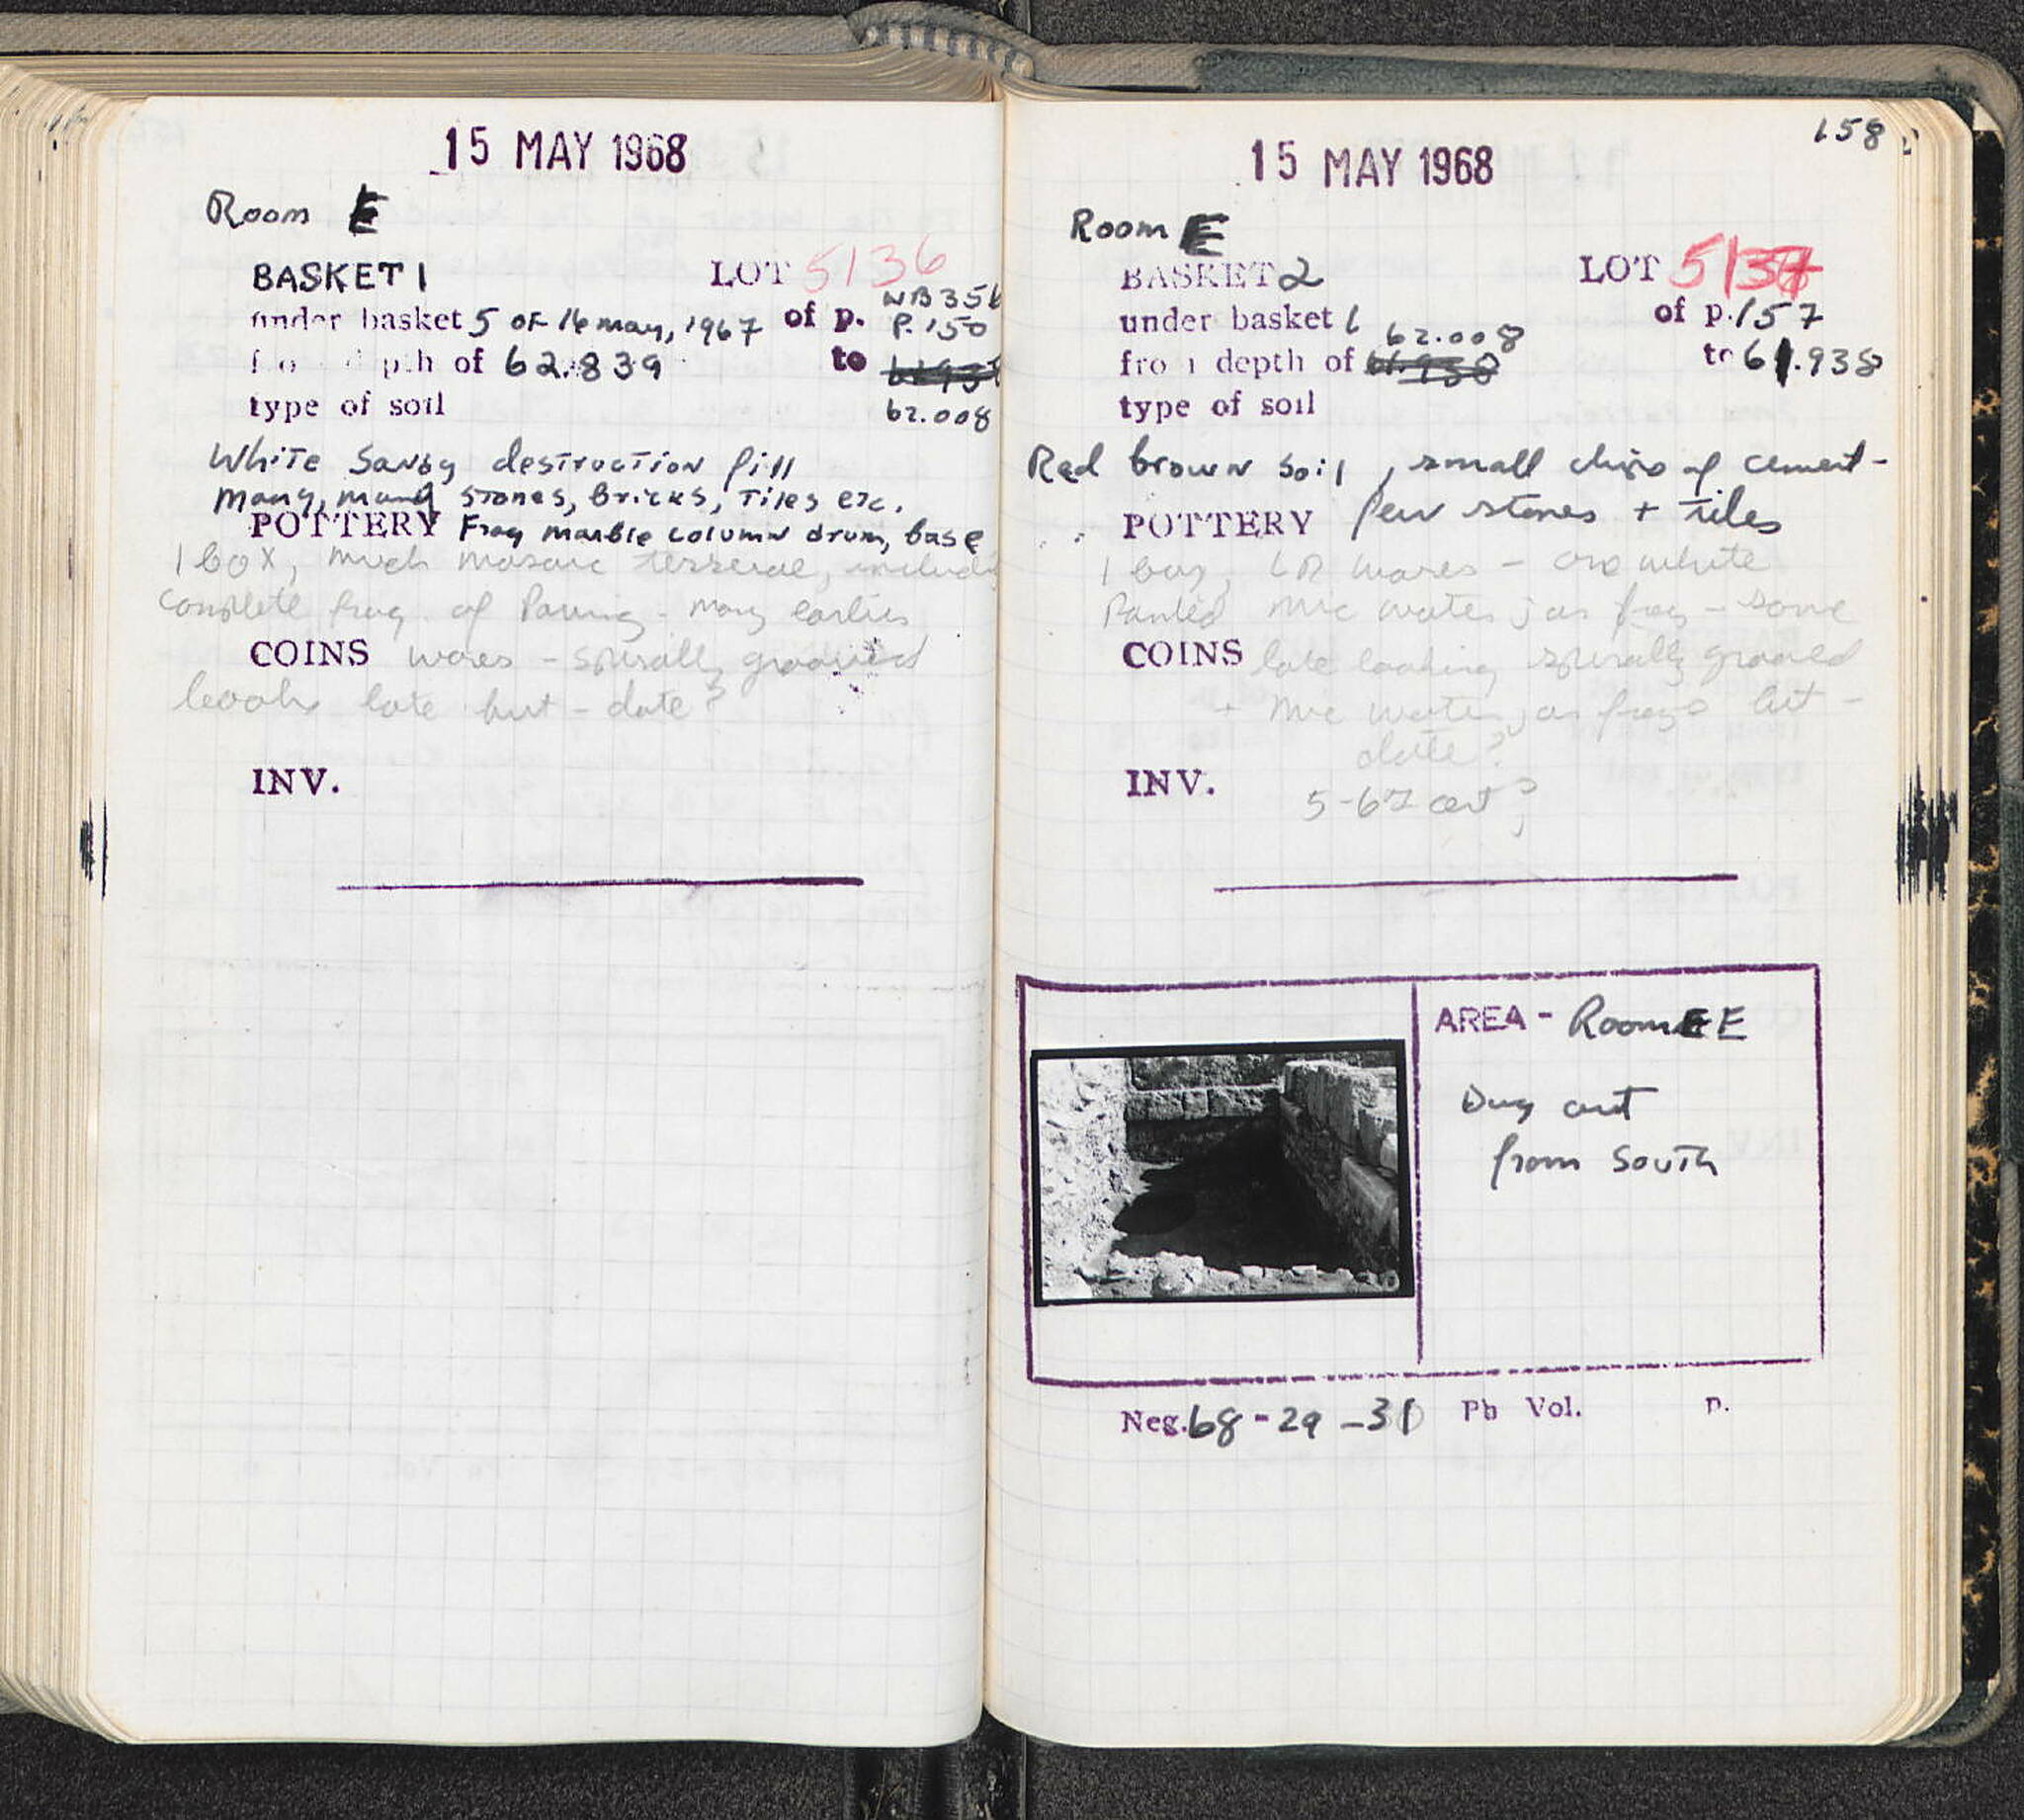 15 MAY 1968
Room E
BASKET 1 LOT 5136
under basket 5 OF 16 may, 1967 of p. NB 356 P. 150
depth of 62.839 to 62.008
type of soil
White Sandy destruction fill
Many, many stones, Bricks, Tiles etc.
POTTERY Frag marble column drum, base
1 box, much mosaic tesserae, includi
complete frag of Paving - many earlier
COINS wares - spirally grooved
looks late but - date?
INV.
158
15 MAY 1968
Room E
BASKET 2 LOT 5137
under basket 1 of p. 157
from depth of 62.008 to 61.938
type of soil
Red brown soil, small chips of cement -
POTTERY few stones + tiles
1 bag, LR wares - one white
Painted mic water jar frag - some
COINS late looking spirally grooved
+ mic water jar frags but -
date?
INV. 5-6th cent?
AREA - Room E
Dug out
from South
Neg. 68-29-31 Pb Vol. p.